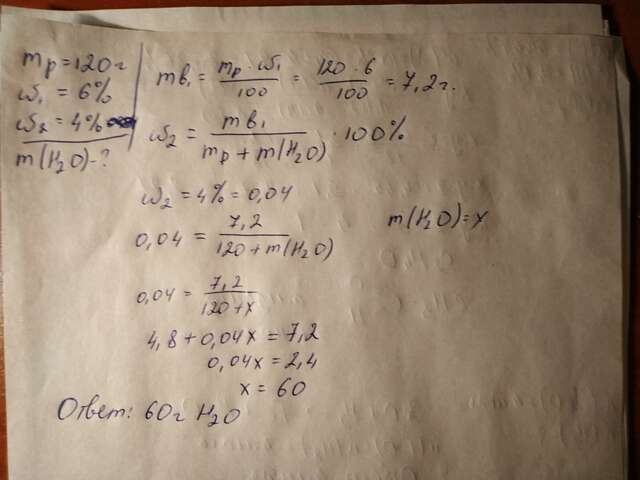 mp = 120г
ω₁ = 6%
ω₂ = 4%
m(H₂O) - ?
mв₁ = mp · ω₁ / 100 = 120 · 6 / 100 = 7,2г.
ω₂ = mв₁ / mp + m(H₂O) · 100%
ω₂ = 4% = 0,04
0,04 = 7,2 / 120 + m(H₂O)
m(H₂O) = x
0,04 = 7,2 / 120 + x
4,8 + 0,04x = 7,2
0,04x = 2,4
x = 60
Ответ: 60г H₂O